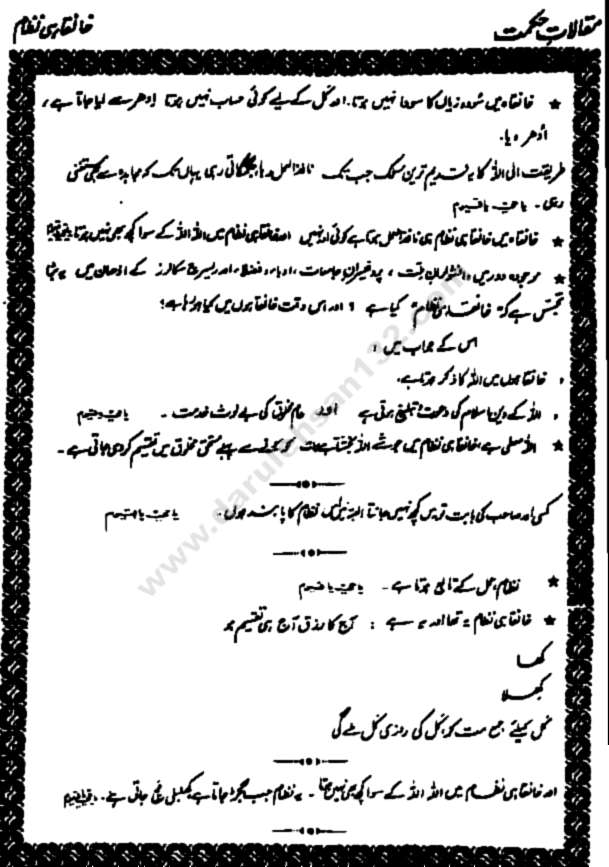 مقالاتِ حکمت
خانقاہی نظام
★ خانقاہ میں سُود و زیاں کا سودا نہیں ہوتا۔ اللہ کُل کے لیے کوئی حساب نہیں ہوتا اِدھر سے لیا جاتا ہے،
اُدھر دیا۔
طریقت الی اللہ کا یہ قدیم ترین مسلک جب تک نافذ العمل رہا جگمگاتی رہی یہاں تک کہ
رہی۔ یا حیّ یا قیّوم
★ خانقاہ میں خانقاہی نظام ہی نافذ العمل ہوتا ہے کوئی اور نہیں اور خانقاہی نظام میں اللہ اللہ کے سوا کچھ بھی نہیں ہوتا
★ موجودہ دور میں دانشورانِ ملّت، پروفیسرانِ جامعات، ادباء، فضلاء اور ریسرچ سکالرز کے اذہان میں یہ
تجسّس ہے کہ "خانقاہی نظام" کیا ہے؟ اور اس وقت خانقاہوں میں کیا ہو رہا ہے؟
اس کے جواب میں:
، خانقاہوں میں اللہ کا ذکر ہوتا ہے،
، اللہ کے دین اسلام کی دعوت و تبلیغ ہوتی ہے اور عام مخلوق کی بے لوث خدمت۔ یا حیّ یا قیّوم
★ اللہ معطی ہے، خانقاہی نظام میں جو شے اللہ بخشتا ہے رات کو سونے سے پہلے مستحق مخلوق میں تقسیم کر دی جاتی ہے۔
کسی اور صاحب کی بابت تو میں کچھ نہیں جانتا البتہ میں اس نظام کا پابند ہوں۔ یا حیّ یا قیّوم
★ نظام عمل کے تابع ہوتا ہے۔ یا حیّ یا قیّوم
★ خانقاہی نظام یہ تھا اور یہ ہے: آج کا رزق آج ہی تقسیم ہو
کھا
کھلا
کل کیلئے جمع مت کر، کل کی روزی کل ملے گی
اور خانقاہی نظام میں اللہ اللہ کے سوا کچھ بھی نہیں ہوتا۔ یہ نظام جب بگڑ جاتا ہے کھلبلی مچ جاتی ہے۔
www.darulehsan132.com